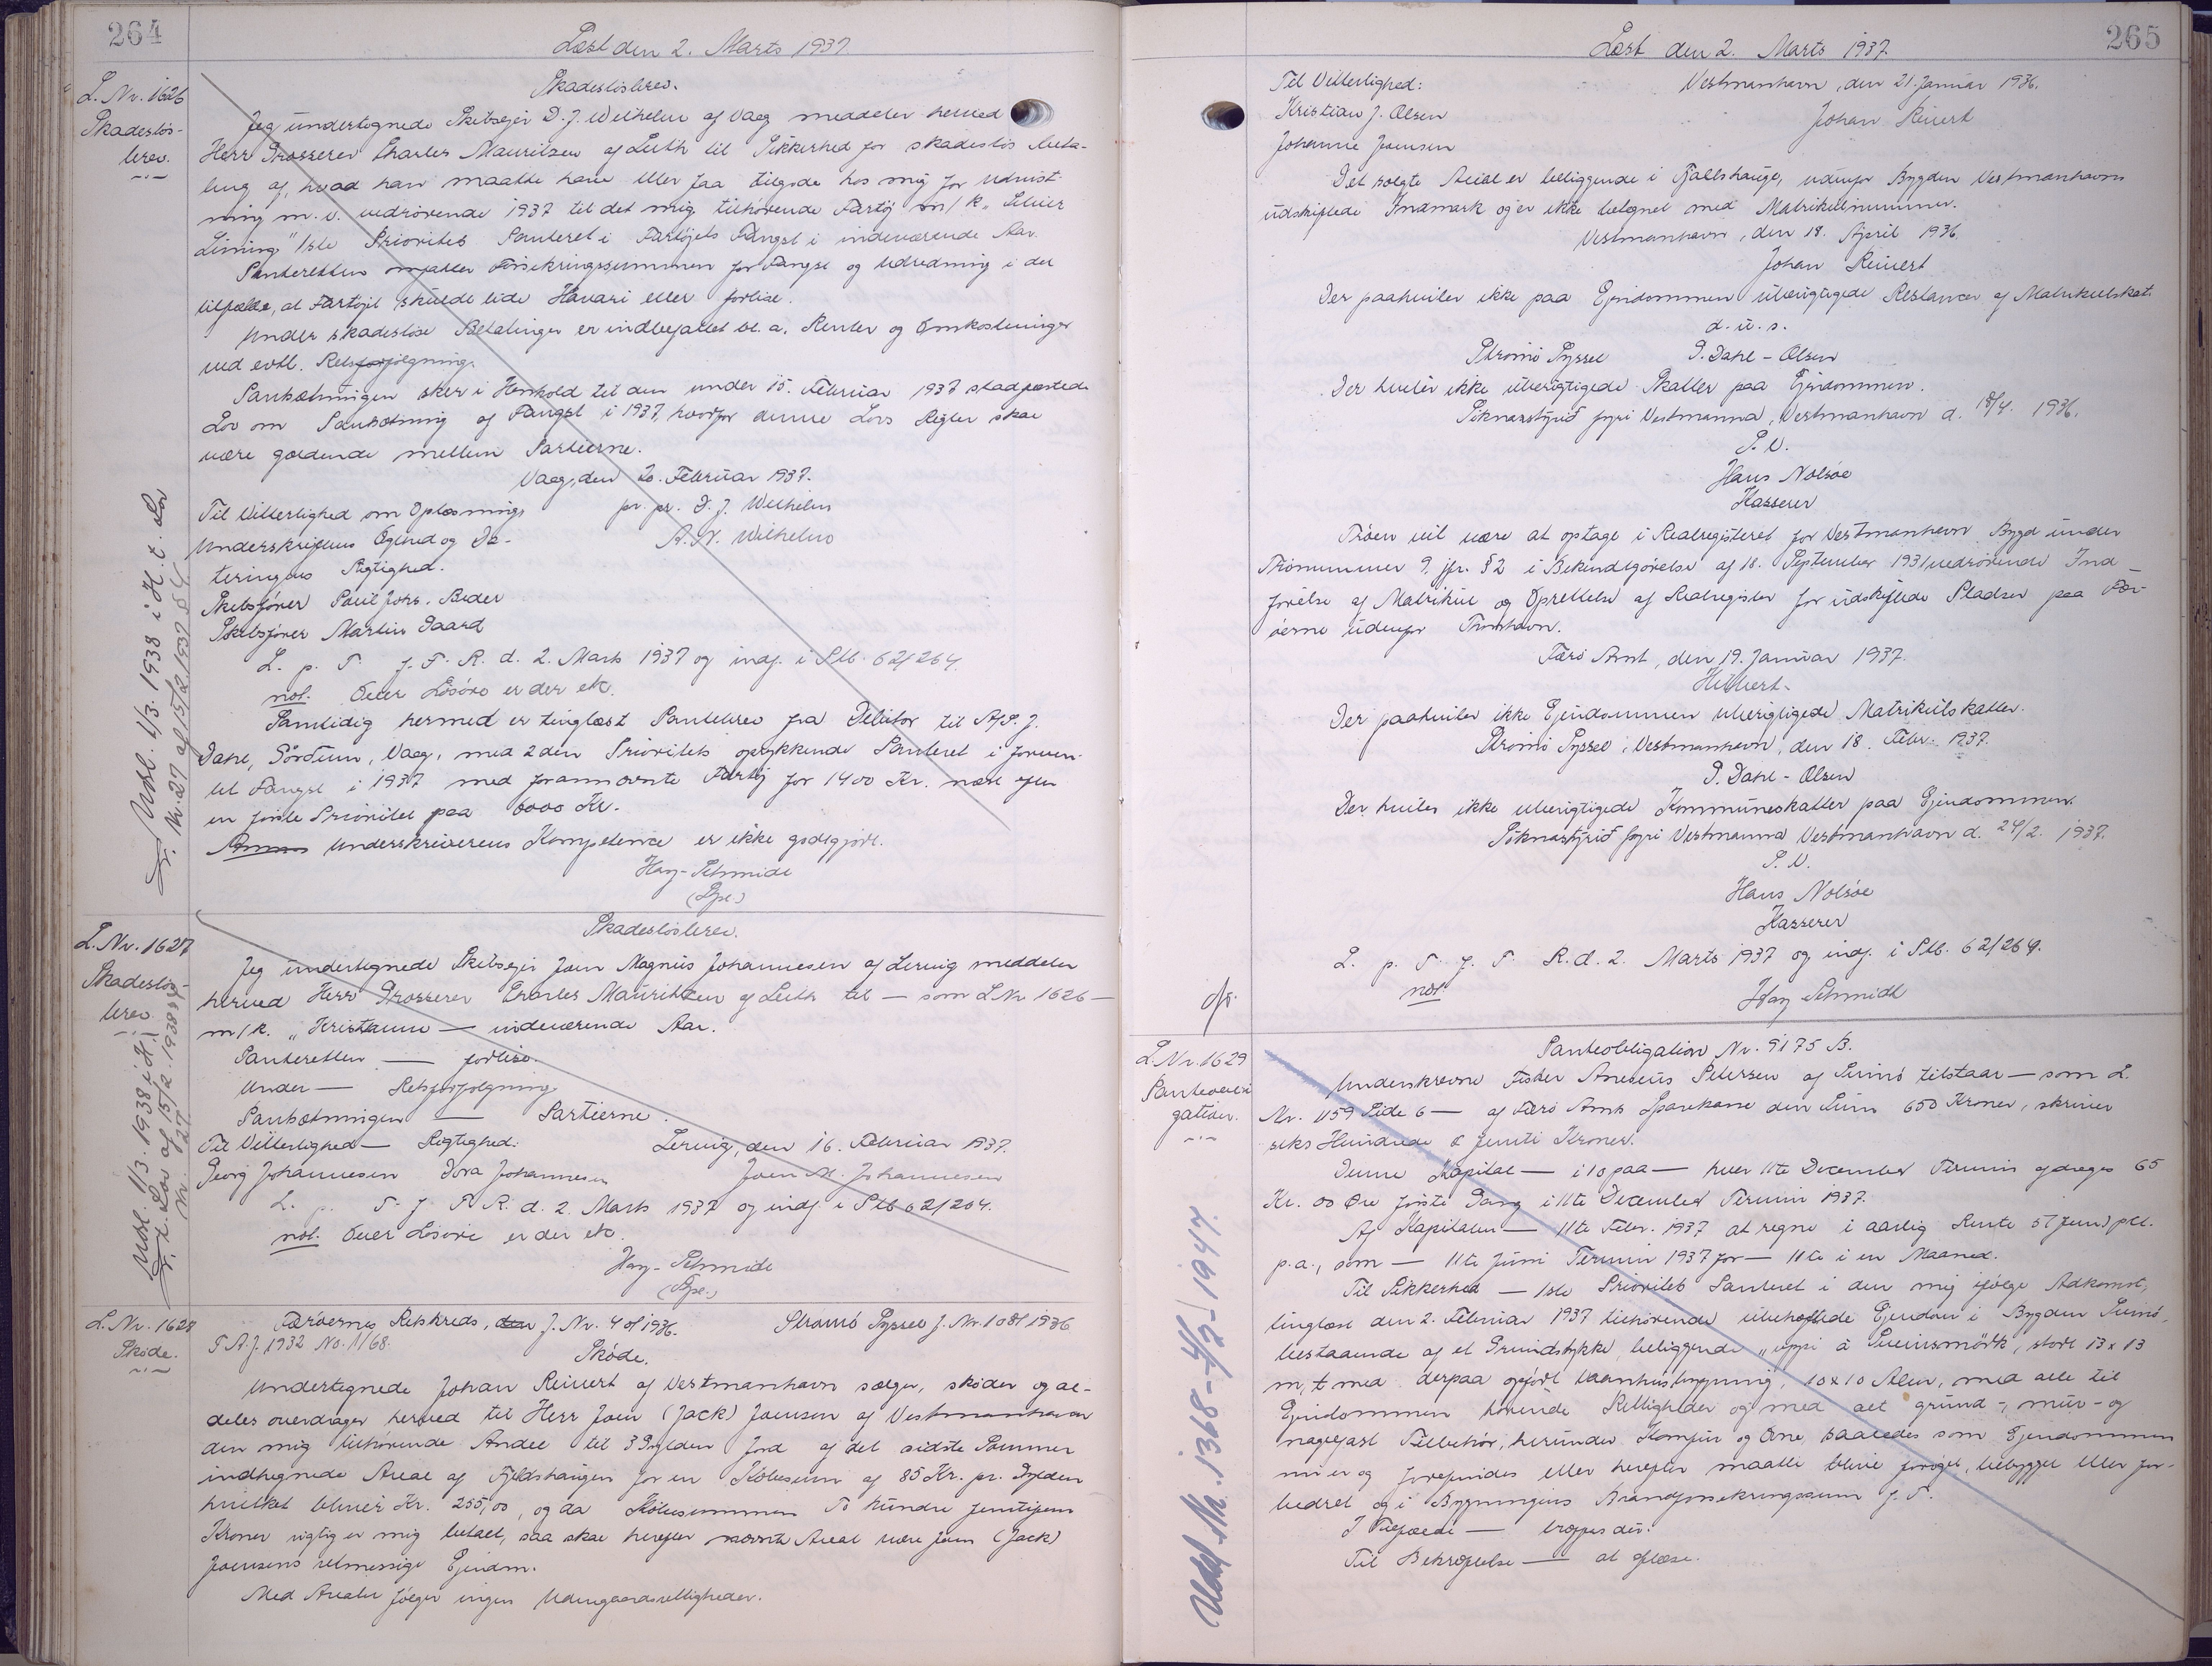 264
Læst den 2. Marts 1937
L. Nr. 1626
Skadesløs-
brev.
Skadesløsbrev.
Jeg undertegnede Skibsejer D. J. Wilhelm af Vaag meddeler herved
Herr Grosserer Charles Mauritzen af Leith til Sikkerhed for skadesløs Beta-
ling af, hvad han maatte have eller faa tilgode hos mig for Udrust-
ning m. v. vedrørende 1937 til det mig tilhørende Fartøj m/k. "Silver
Lining" 1ste Prioritets Panteret i Fartøjets Fangst i indeværende Aar.
Panteretten omfatter Forsikringssummen for Fangst og Udredning i det
tilfælde, at Fartøjet skulde lide Havari eller forlise.
Under skadesløse Betalinger er indbefattet bl. a. Renter og Omkostninger
ved evtl. Retsforfølgning.
Pantsætningen sker i Henhold til den under 15. Februar 1937 stadfæstede
Lov om Pantsætning af Fangst i 1937, hvorfor denne Lovs Regler skal
være gældende mellem Parterne.
Vaag, den 20. Februar 1937.
Til Vitterlighed om Oplæsning, pr. pr. D. J. Wilhelm
Underskriftens Ægthed og Da- A. W. Wilhelm
teringens Rigtighed.
Skibsfører Poul Johs. Beder
Skibsfører Martin Daard
L. p. T. f. F. R. d. 2. Marts 1937 og indf. i Ptb. 62/264.
not. Over Løsøre er der etc.
Samtidig hermed er tinglæst Pantebrev fra Debitor til A/S. J.
Dahl, Sørdum, Vaag, med 2den Prioritets oprykkende Panteret i forven-
tet Fangst i 1937 med forannævnte Fartøj for 1400 Kr. næst efter
en første Prioritet paa 6000 Kr.
Underskriverens Kompetence er ikke godtgjort.
Hay-Schmidt
(Dpt.)
Udsl. 1/3 1938 i H. t. Lov
Nr. 27 af 15/2 1937 § 4
L. Nr. 1627
Skadesløs-
brev
Skadesløsbrev.
Jeg undertegnede Skibsejer Joen Magnus Johannesen af Lervig meddeler
herved Herr Grosserer Charles Mauritzen af Leith til — som L Nr 1626 —
m/k. "Kristianne — indeværende Aar.
Panteretten — forlise.
Under — Retsforfølgning.
Pantsætningen — Parterne.
Til Vitterlighed — Rigtighed: Lervig, den 16. Februar 1937.
Georg Johannesen Dora Johannesen Joen M. Johannesen
L. p. T. f. F. R. d. 2. Marts 1937 og indf. i Ptb 62/264.
not. Over Løsøre er der etc.
Hay-Schmidt
(Dpt.)
Udsl. 1/3. 1938 i H.
t. Lov af 15/2. 1938 §4
Nr. 27
L. Nr. 1628
Skøde.
Færøernes Retskreds, den J. Nr. 4 of 1936. Strømø Syssel J. Nr. 108 of 1936
F. A. J. 1932 No. 11/68.
Skøde.
Undertegnede Johan Reinert af Vestmanhavn sælger, skøder og al-
deles overdrager herved til Herr Joen (Jack) Joensen af Vestmanhavn
den mig tilhørende Andel til 3 Gylden Jord af det sidste Sommer
indhegnede Areal af Fjeldshaugen for en Købesum af 85 Kr. pr. Gylden
hvilket bliver Kr. 255,00, og da Købesummen To hundre femtifem
Kroner rigtig er mig betalt, saa skal herefter nævnte Areal være Joen (Jack)
Joensens retmessige Ejendm.
Med Arealet følger ingen Udengaardsrettigheder.
265
Læst den 2. Marts 1937.
Til Vitterlighed: Vestmanhavn, den 21. Januar 1936.
Kristian J. Olsen Johan Reinert
Johanne Joensen
Det solgte Areal er beliggende i Fjallshauge, udenfor Bygden Vestmanhavns
udskiftede Indmark og er ikke betegnet med Matrikulnummer.
Vestmanhavn, den 18. April 1936.
Johan Reinert
Der paahviler ikke paa Ejendommen uberigtigede Restancer af Matrikulskat.
d. u. s.
Strømø Syssel P. Dahl-Olsen
Der hviler ikke uberigtigede Skatter paa Ejendommen.
Sóknarstýrið fyri Vestmanna, Vestmanhavn d. 18/4. 1936.
P. V.
Hans Nolsøe
Kasserer
Trøen vil være at optage i Realregisteret for Vestmanhavn Bygd under
Trønummer 9. jfr. § 2 i Bekendtgørelse af 18. September 1931 vedrørende Ind-
førelse af Matrikul og Oprettelse af Realregister for udskiftede Pladser paa Fær-
øerne udenfor Thorshavn.
Færø Amt, den 19. Januar 1937.
Hilbert.
Der paahviler ikke Ejendommen uberigtigede Matrikulskatter.
Strømø Syssel, Vestmanhavn, den 18. Febr. 1937.
P. Dahl-Olsen
Der hviler ikke uberigtigede Kommuneskatter paa Ejendommen.
Sóknarstýrið fyri Vestmanna Vestmanhavn d. 24/2. 1937.
P. V.
Hans Nolsøe
Kasserer
L. p. T. f. F. R. d. 2. Marts 1937 og indf. i Ptb. 62/264.
not. Hay Schmidt
L. Nr. 1629
Panteobli-
gation.
Panteobligation Nr. 9175 B.
Underskrevne Fisker Anesius Petersen af Sumbø tilstaar — som L.
Nr. 1159 Side 6 — af Færø Amts Sparekasse den Sum 650 Kroner, skriver
seks Hundrede & femti Kroner.
Denne Kapital — i 10 paa — hver 11te December Termin afdrages 65
Kr. 00 Øre første Gang i 11te December Termin 1937.
Af Kapitalen — 11te Febr. 1937 at regne i aarlig Rente 5 (fem) pCt.
p. a., som — 11te Juni Termin 1937 for — 11te i en Maaned.
Til Sikkerhed — 1ste Prioritets Panteret i den mig ifølge Adkomst,
tinglæst den 2. Februar 1937 tilhørende ubehæftede Ejendom i Bygden Sumbø,
bestaaende af et Grundstykke, beliggende "uppi á Sveinsmørk, stort 13 x 13
m, t med derpaa opført Vaanhusbygning, 10 x 10 Alen, med alle til
Ejendommen hørende Rettigheder og med alt grund-, mur- og
nagelfast Tilbehør, herunder Komfur og Ovne, saaledes som Ejendommen
nu er og forefindes eller herefter maatte blive forøget, bebygget eller for-
bedret og i Bygningens Brandforsikringssum f. T.
I Tilfælde — træffes der.
Til Bekræftelse — at aflæse.
Udsl. 1947.